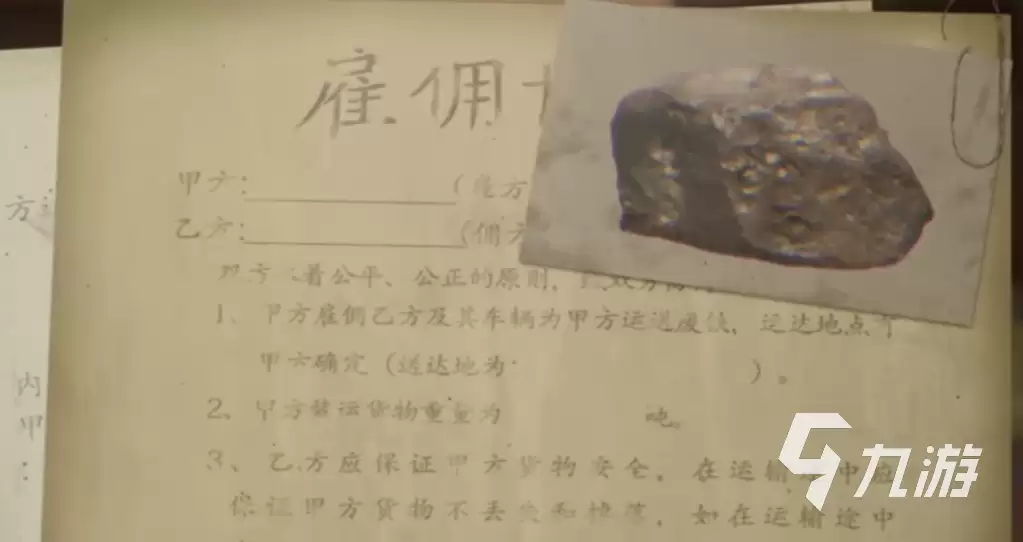 雇佣
甲方：(雇方
乙方：(佣方
方
着公平、公正的原则，双方
1、甲方雇佣乙方及其车辆为甲方运送废铁，运达地点
甲方确定（送达地为 ）。
内
甲
：
2、甲方 运货物重量为 吨。
3、乙方应保证甲方货物安全。在运输途中应
保证甲方货物不丢失和掉落，如在运输途中
九游